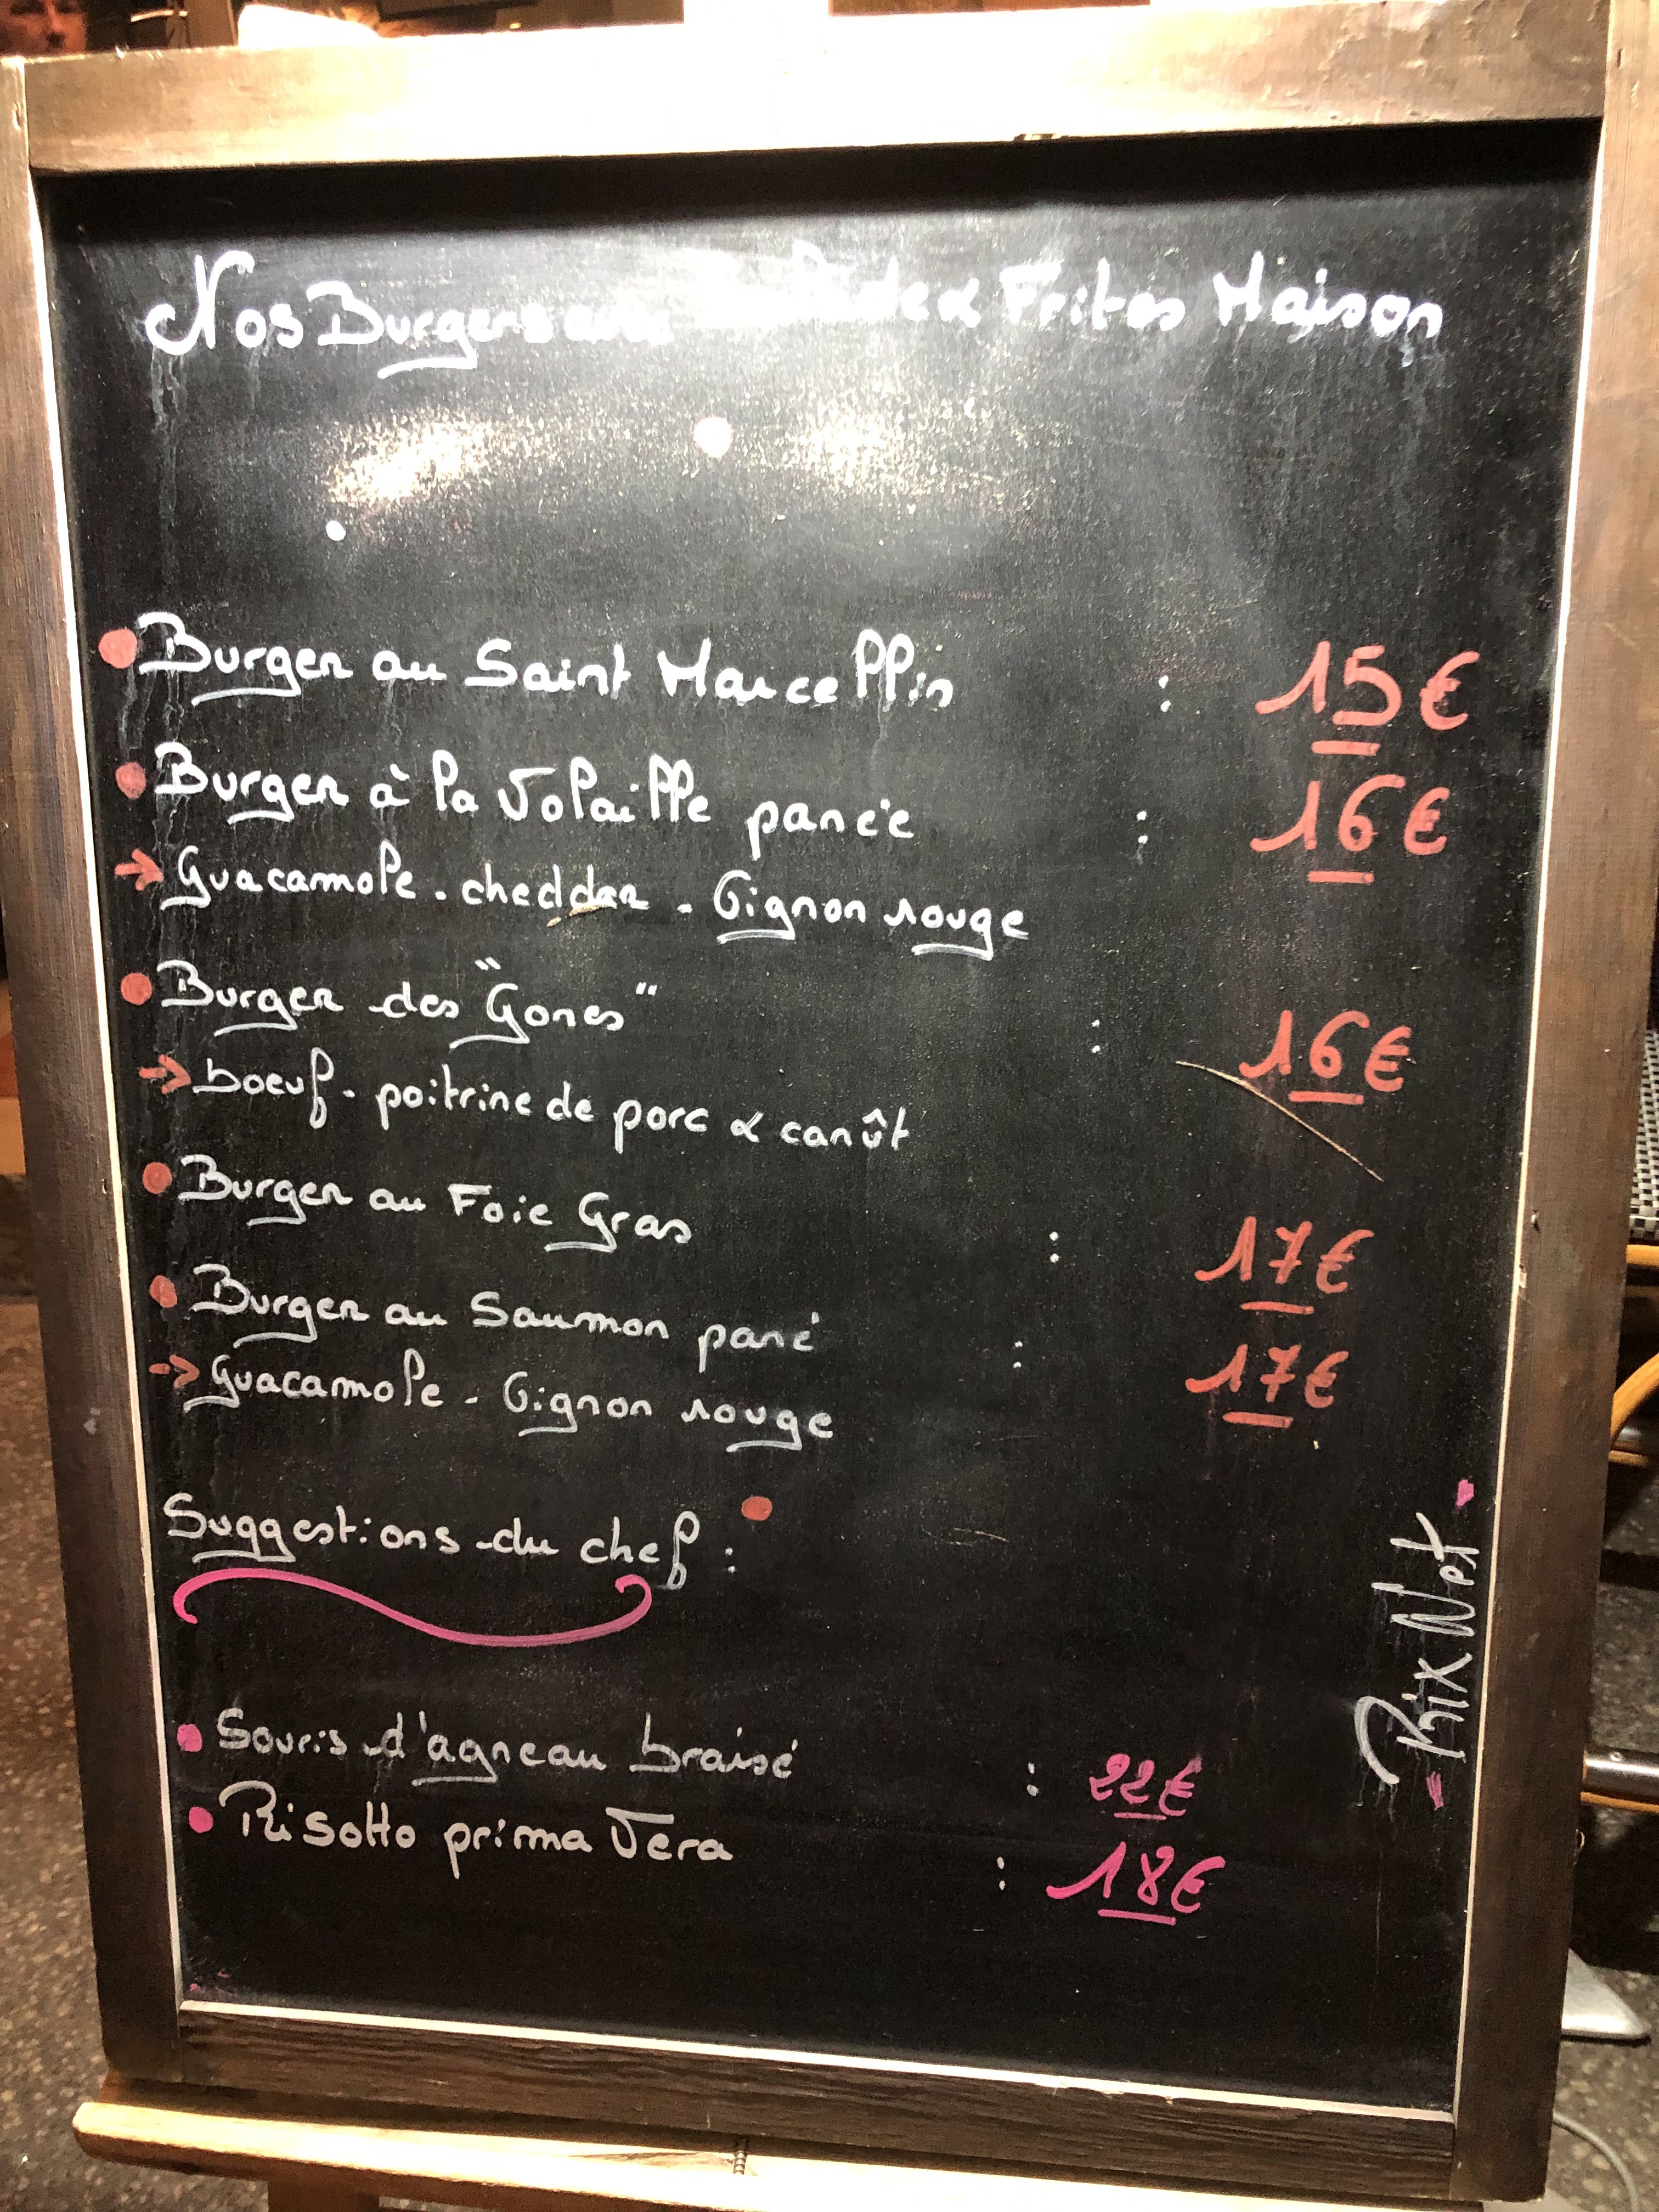 Nos Burgers avec Salade & Frites Maison
Burger au Saint Marcellin : 15€
Burger à la Volaille panée : 16€
→ Guacamole - cheddar - Oignon rouge
Burger des "Gones" : 16€
→ boeuf - poitrine de porc & canût
Burger au Foie Gras : 17€
Burger au Saumon pané : 17€
→ Guacamole - Oignon rouge
Suggestions du chef :
Souris d'agneau braisé : 22€
Risotto prima Vera : 18€
- Prix Net -